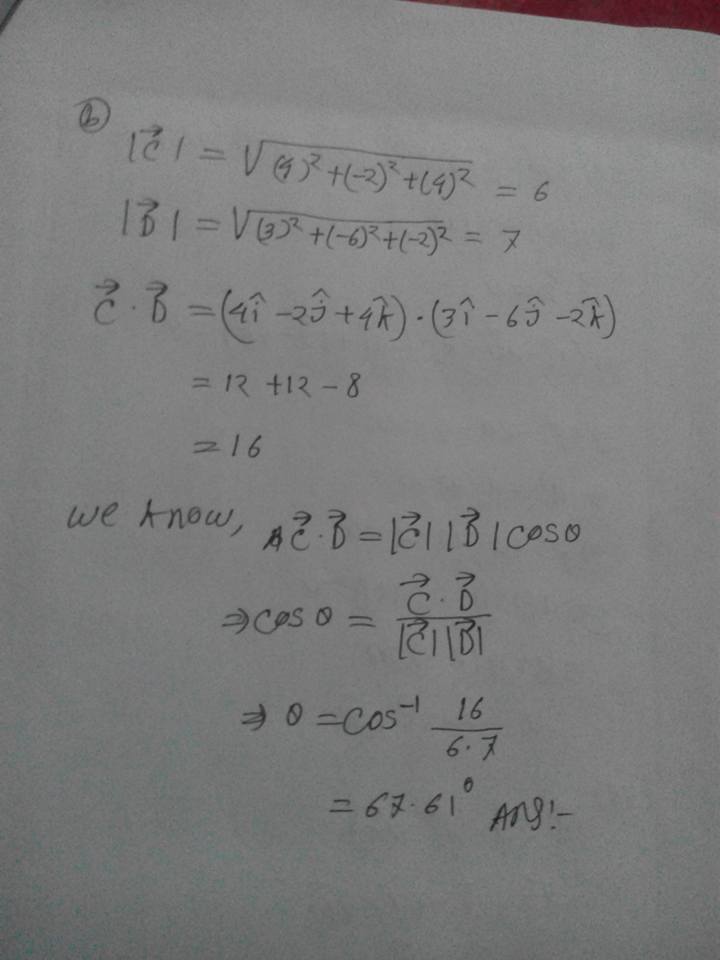 ⓑ
|C⃗| = √(4)²+(-2)²+(4)² = 6
|B⃗| = √(3)²+(-6)²+(-2)² = 7
C⃗ · B⃗ = (4î - 2ĵ + 4k̂) · (3î - 6ĵ - 2k̂)
= 12 + 12 - 8
= 16
We know, C⃗ · B⃗ = |C⃗| |B⃗| cosθ
⇒ cosθ = C⃗ · B⃗ / |C⃗| |B⃗|
⇒ θ = cos⁻¹ 16 / 6·7
= 67.61° Ans:-